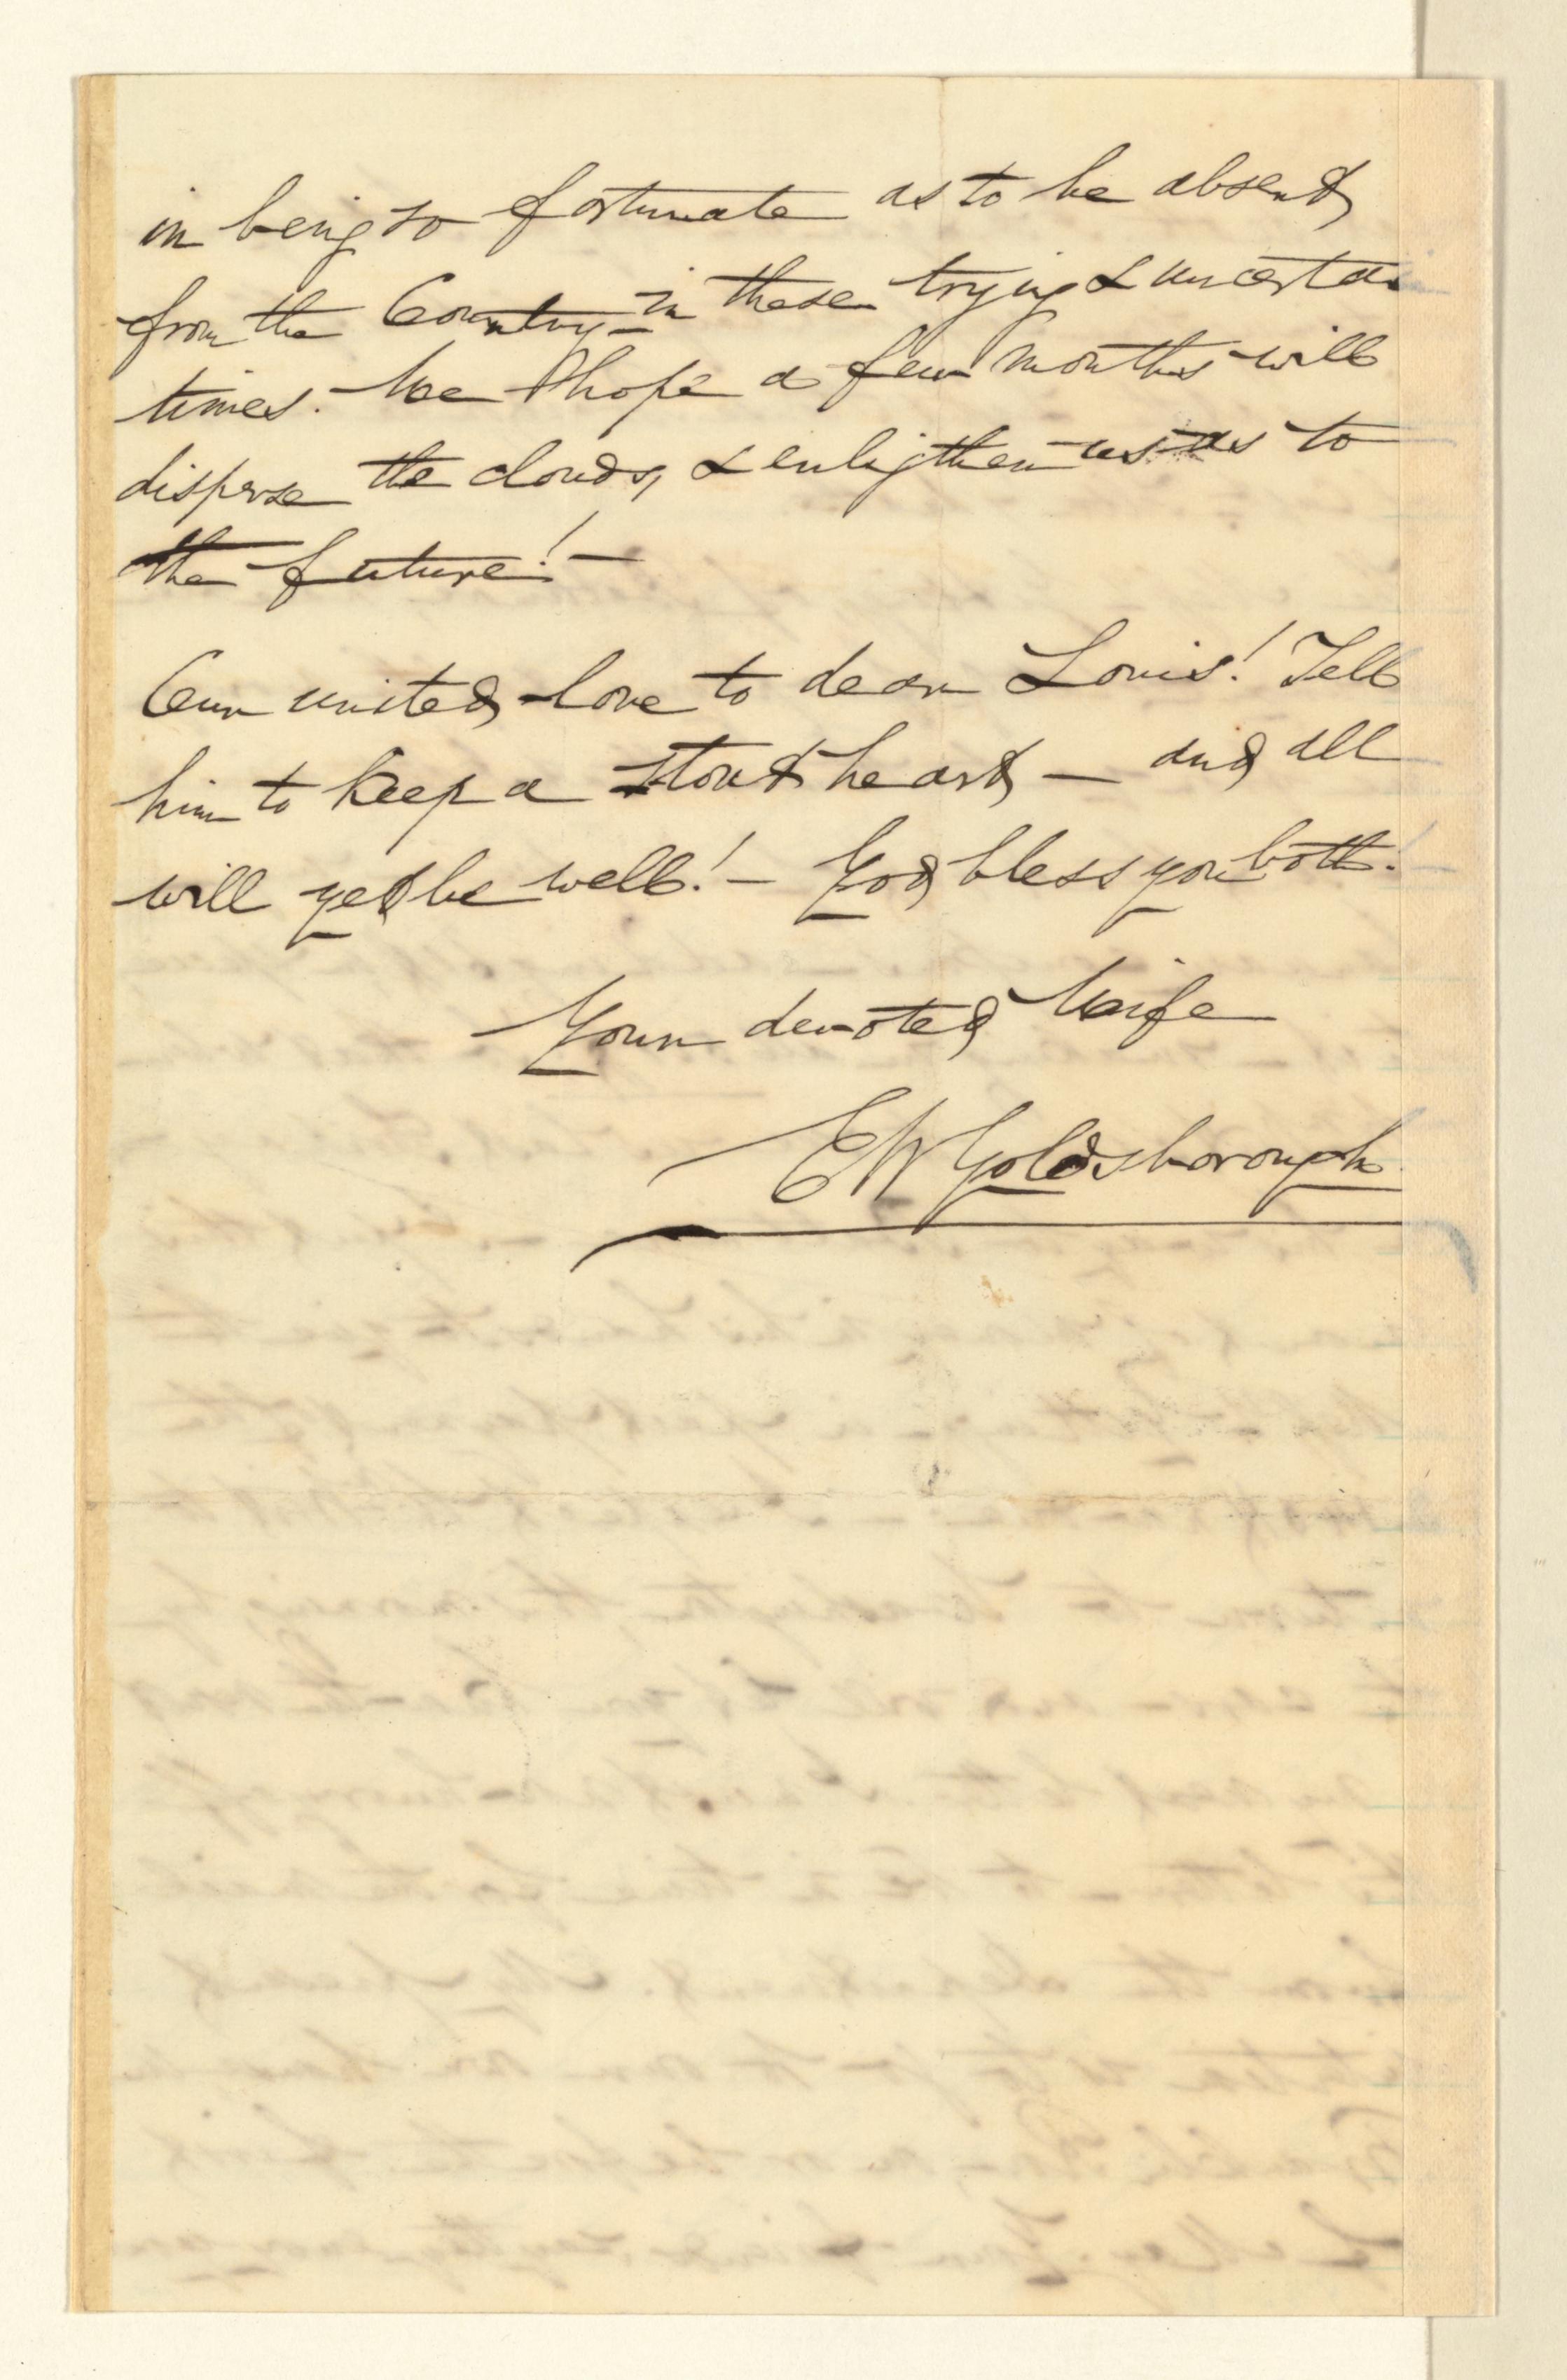 in being so fortunate as to be absent
from the Country - in these trying & uncertain
times. We hope a few months will
disperse the clouds, & enligthen us as to
the future! -
Our united love to dear Louis! Tell
him to keep a stout heart - and all
will yet be well! - God bless you both! -
Your devoted Wife
E W Goldsborough